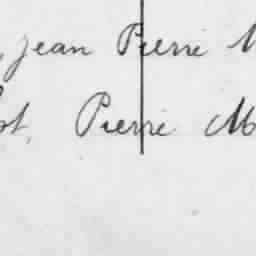 , Jean Pierre M
st, Pierre M